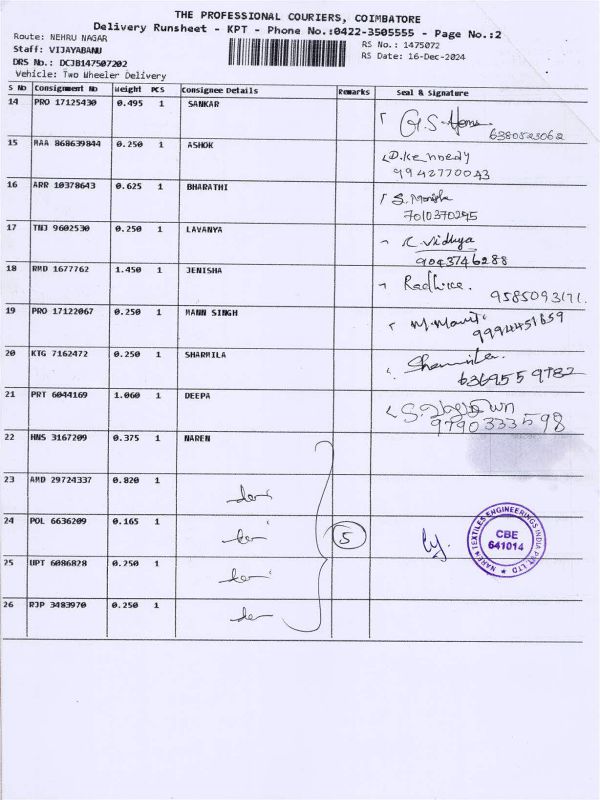 THE PROFESSIONAL COURIERS, COIMBATORE
Delivery Runsheet - KPT - Phone No.:0422-3505555 - Page No.:2
Route: NEHRU NAGAR
RS No.: 1475072
Staff: VIJAYABANU
RS Date: 16-Dec-2024
DRS No.: DCJB147507202
Vehicle: Two Wheeler Delivery
S No Consignment No Weight PCS Consignee Details Remarks Seal & Signature
14 PRO 17125430 0.495 1 SANKAR
6380523062
15 MAA 868639844 0.250 1 ASHOK D.Kennedy
9942770043
16 ARR 10378643 0.625 1 BHARATHI S. Manisha
7010370295
17 TNJ 9602530 0.250 1 LAVANYA K. Vidhya
9043746288
18 RMD 1677762 1.450 1 JENISHA
9585093171.
19 PRO 17122067 0.250 1 MANN SINGH
9994451659
20 KTG 7162472 0.250 1 SHARMILA Sharmila.
6369559782
21 PRT 6044169 1.060 1 DEEPA
9790333598
22 HNS 3167209 0.375 1 NAREN
23 AMD 29724337 0.820 1
24 POL 6636209 0.165 1 5
NAREN TEXTILES ENGINEERINGS INDIA PVT. LTD
CBE
641014
25 UPT 6086828 0.250 1
26 RJP 3483970 0.250 1